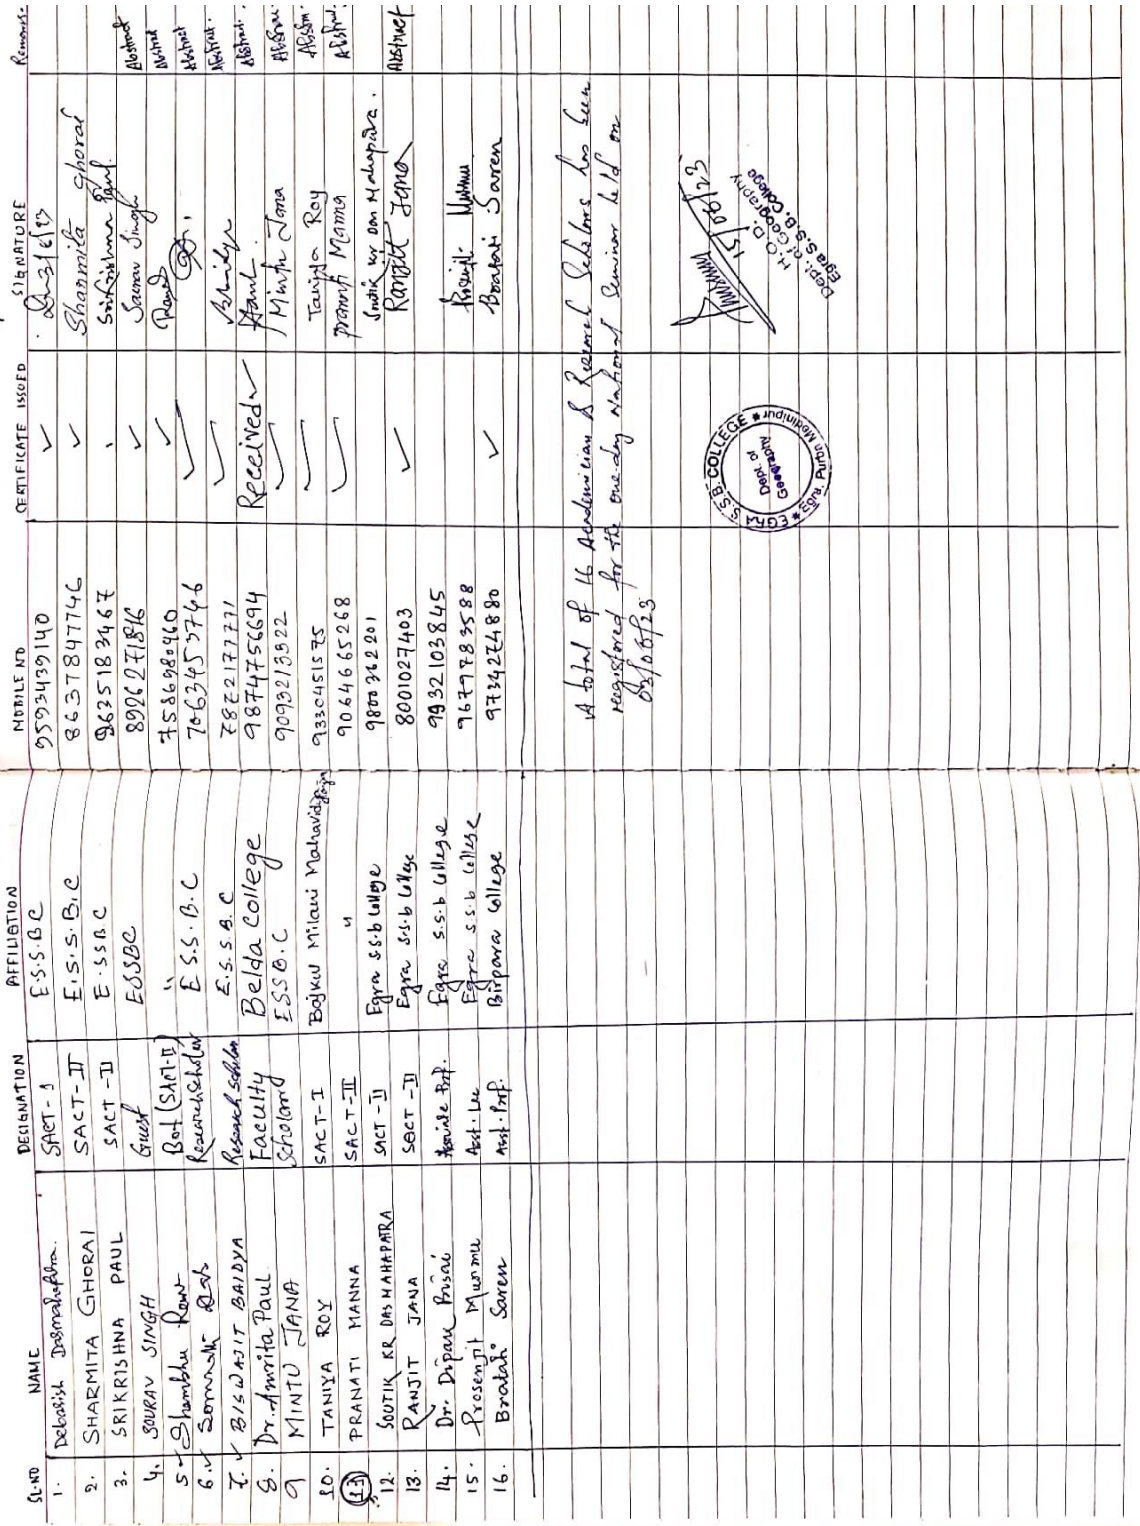 SL.NO NAME DESIGNATION AFFILIATION MOBILE NO CERTIFICATE ISSUED SIGNATURE Remarks.
1. Debasish Dasmahapatra. SACT-1 E.S.S.B.C 9593439140 ✓
2. SHARMITA GHORAI SACT-II E.S.S.B.C 8637847746 ✓ Sharmita Ghorai
3. SRIKRISHNA PAUL SACT-II E.SSB.C 9635183467 Srikrishna Paul Abstract
4. SOURAV SINGH Guest ESSBC 8926271816 ✓ Sourav Singh Abstract
5 ✓ Shambhu Rour Bot (SACT-II) " 7586980460 ✓ Abstract
6. ✓ Somnath Das Research Scholar E.S.S.B.C 7063453746 ✓ Abstract
7. ✓ BISWAJIT BAIDYA Research Scholar E.S.S.B.C 7872177771 ✓ Abstract
8. Dr. Amrita Paul Faculty Belda College 9874756694 Received Paul Abstract
9 MINTU JANA Scholar ESSB.C 9093213322 ✓ Mintu Jana Abstract
10. TANIYA ROY SACT-I Bajkul Milani Mahavidyalaya 9330451575 ✓ Taniya Roy Abstract
11 PRANATI MANNA SACT-II " 9064665268 ✓ Pranati Manna Abstract
12. SOUTIK KR DAS MAHAPATRA SACT-II Egra s.s.b College 9800362201 Soutik kr Das Mahapatra.
13. RANJIT JANA SACT-II Egra s.s.b College 8001027403 ✓ Ranjit Jana Abstract
14. Dr. Dipak Bisai Associate Prof. Egra s.s.b College 9932103845
15. Prosenjit Murmu Asst. Lec Egra s.s.b College 9679783588 Prosenjit Murmu
16. Bratati Saren Asst. Prof. Birpara College 9734274880 ✓ Bratati Saren
A total of 16 Academician & Research Scholars has been
registered for the one-day National Seminar held on
03/06/23
15/06/23
H.O.D.
Dept. of Geography
Egra S.S.B. College
EGRA S.S.B. COLLEGE
Dept. of
Geography
Egra, Purba Medinipur